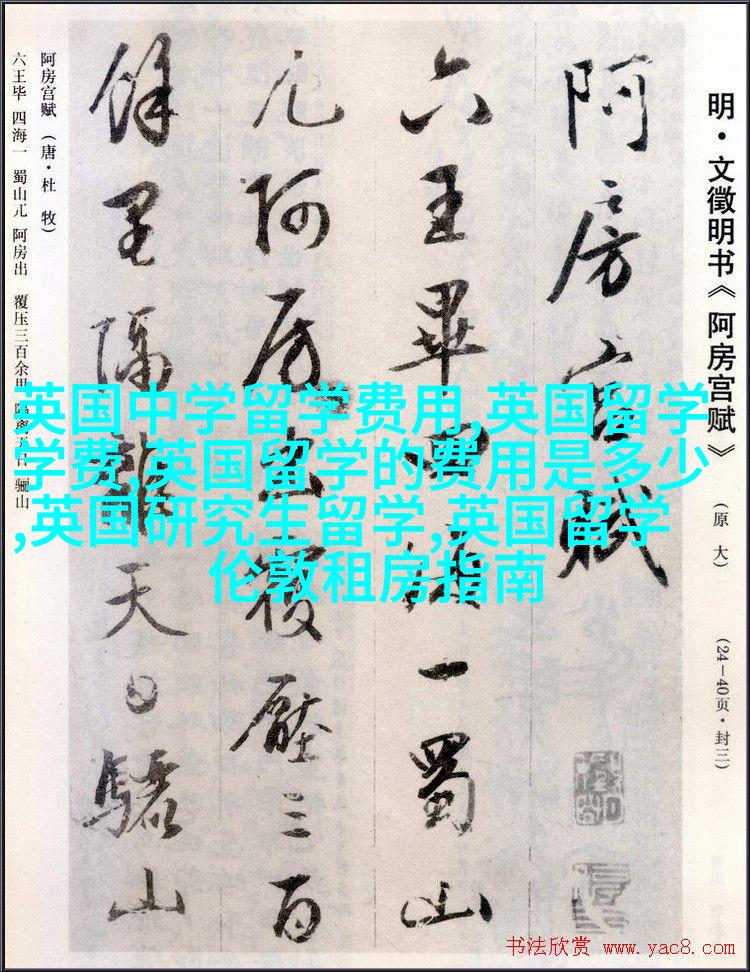 明·文徵明书《阿房宫赋》（原大）（24—40页·封三）
阿房宫賦
六王畢四海一蜀山
兀阿房出覆壓三百
餘里隔離天日驪山
阿房宫赋（唐·杜 牧）
六王毕 四海一 蜀山兀 阿房出 覆压三百余里 隔离天日 骊山
英国中学留学费用,英国留学
学费,英国留学的费用是多少
,英国研究生留学,英国留学
伦敦租房指南
书法欣赏 www.yac8.com